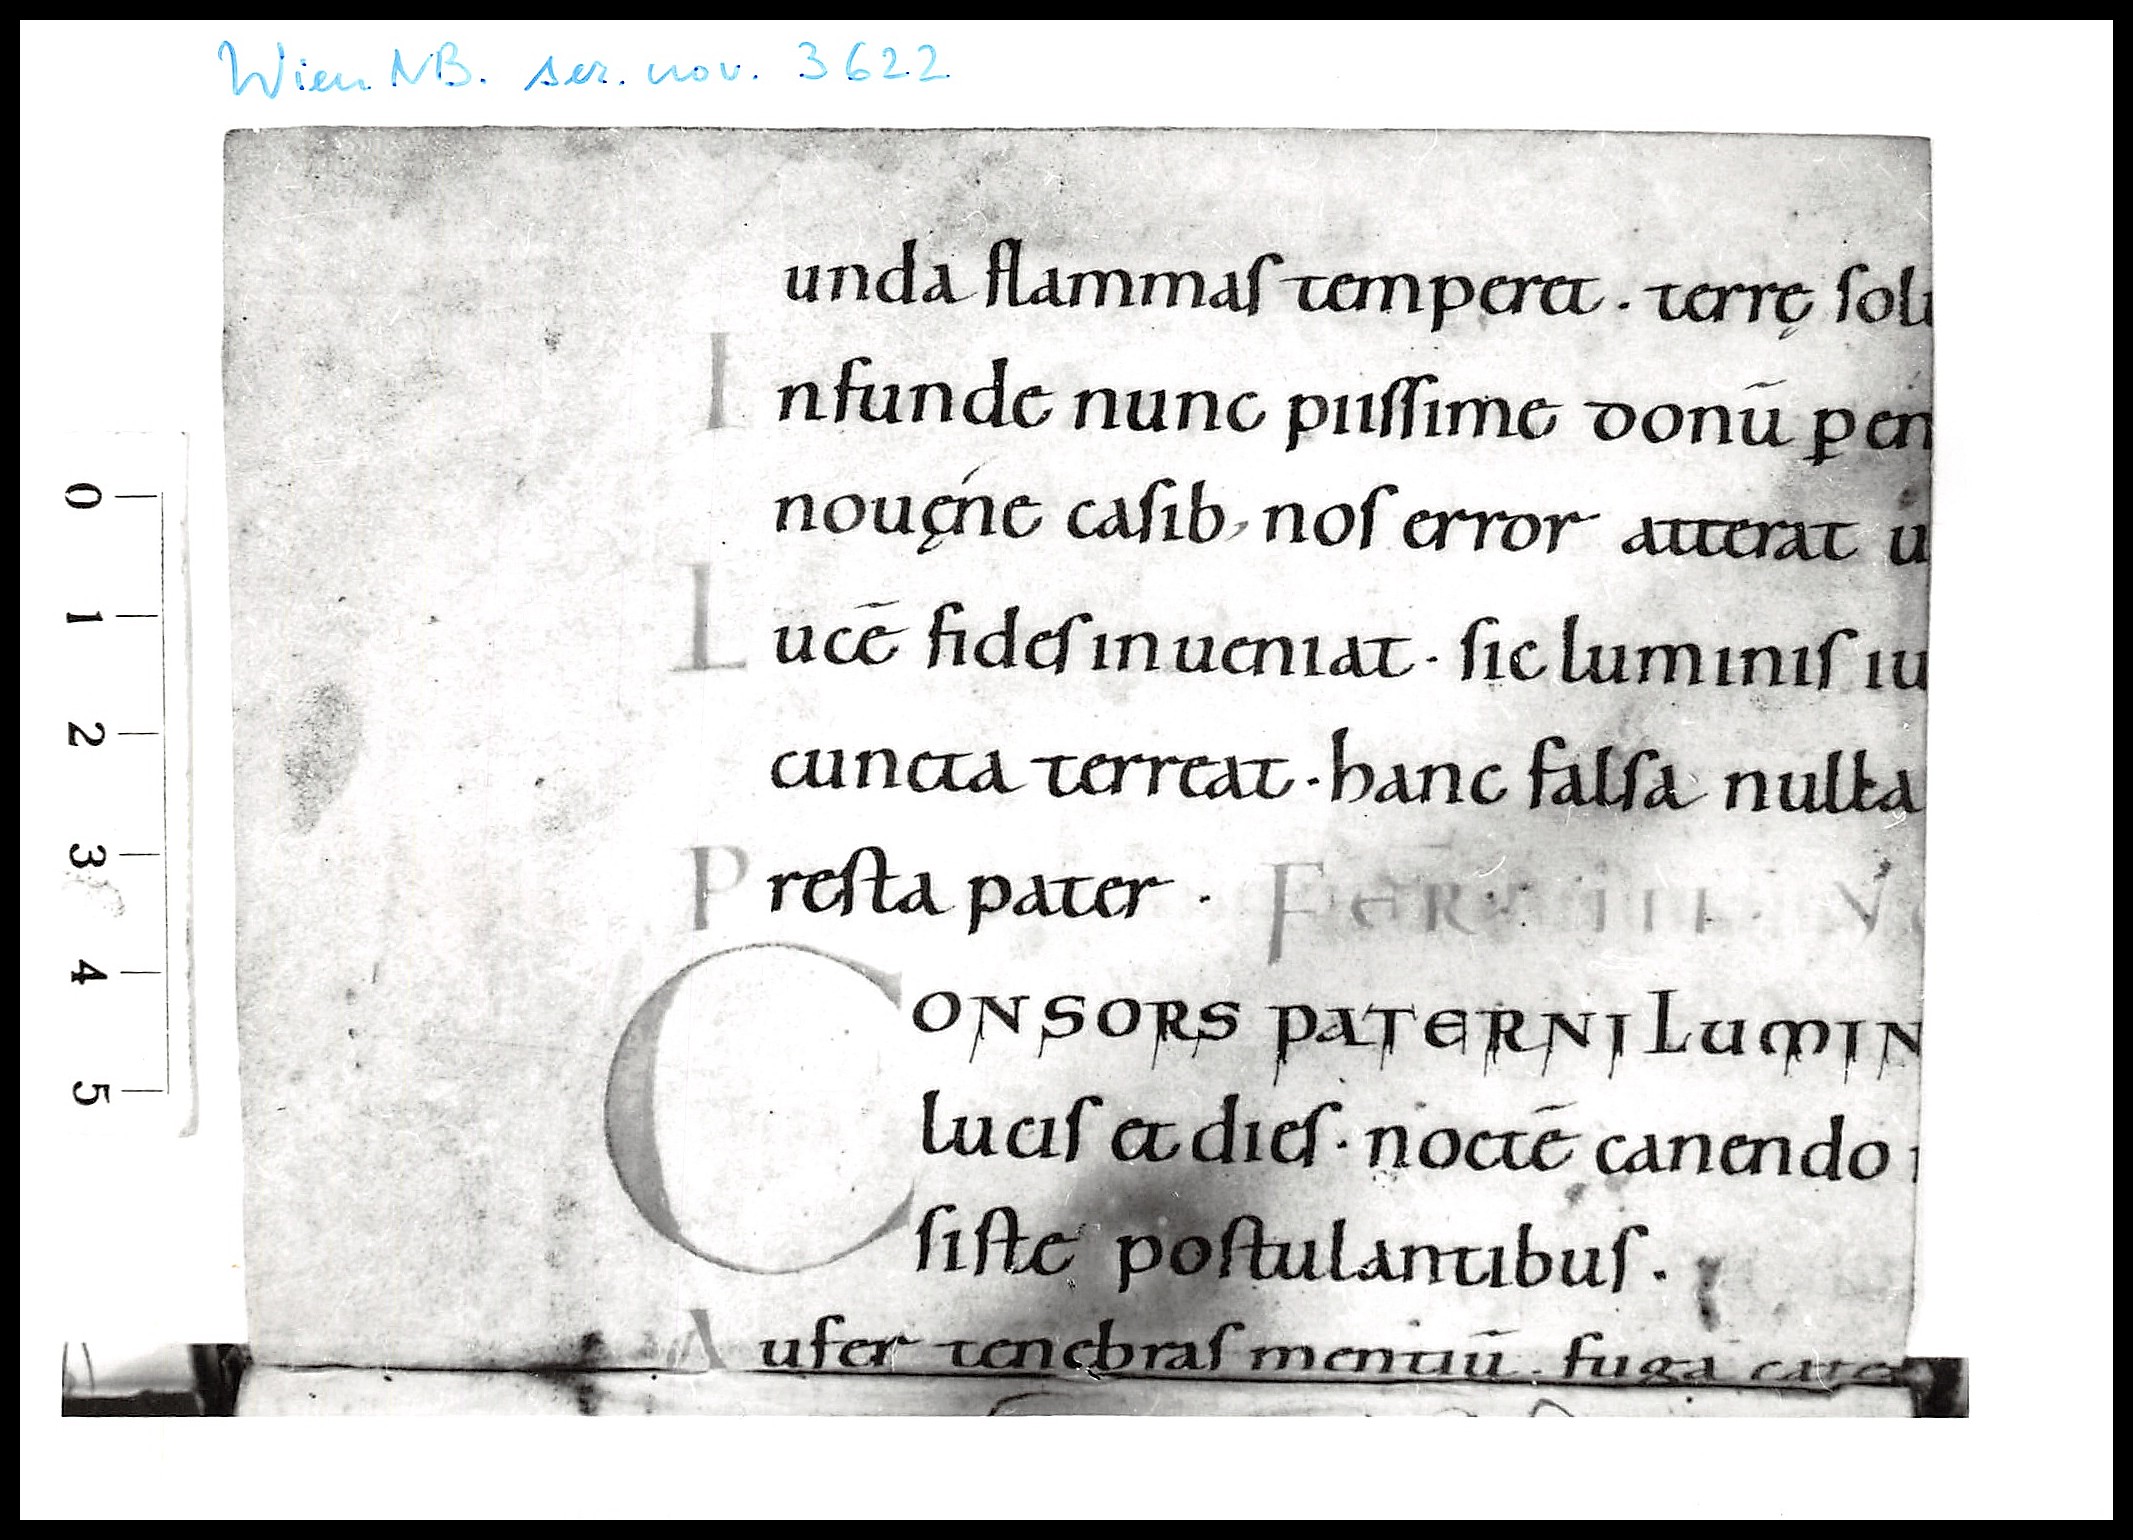 Wien NB. ser. nov. 3622
unda flammaſ temperet . terrę ſolu
Infunde nunc piiſſime donū pen
nouęne caſib; noſ error atterat u
Lucē fideſ inueniat . ſic luminiſ iu
cuncta terreat . hanc falſa nulla
Preſta pater . FERI III . No
CONSORS PATERNI LUMIN
luciſ et dieſ . noctē canendo
ſiſte poſtulantibuſ .
Aufer tenebraſ mentiū . fuga cate
0
1
2
3
4
5